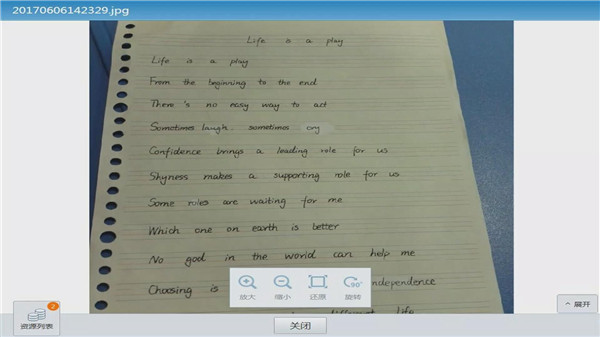 20170606142329.jpg
Life is a play
Life is a play
From the beginning to the end
There 's no easy way to act
Sometimes laugh. sometimes cry
Confidence brings a leading role for us
Shyness makes a supporting role for us
Some roles are waiting for me
Which one on earth is better
No god in the world can help me
Choosing is ndependence
different life
放大 缩小 还原 90° 旋转
2
资源列表
关闭
展开